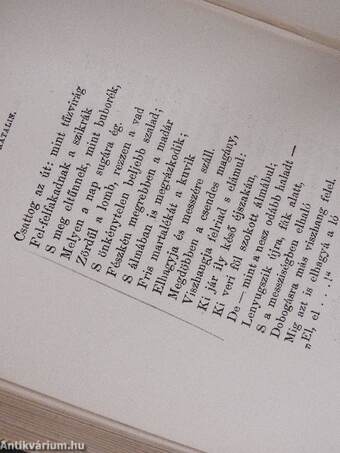 KATALIN.
Csattog az út; mint tűzvirág
Fel-felfakadnak a szikrák
S meg eltünnek, mint buborék,
Melyen a nap sugára ég.
Zördűl a lomb, rezzen a vad
S önkénytelen beljebb szalad;
Fészkén megrebben a madár
S álmában is megrázkodik;
Fris martalékát a kuvik
Elhagyja és messzére száll.
Megdöbben a csendes magány,
Viszhangja felriad s elámul:
Ki jár ily késő éjszakán,
Ki veri fül szokott álmábul;
De — mint a nesz odább haladt —
Lenyugszik újra, fák alatt,
S a messzeségben elhaló
Dobogásra más viszhang felel,
Míg azt is elhagyá a ló
"El, el . . . .!"
Antikvárium.hu